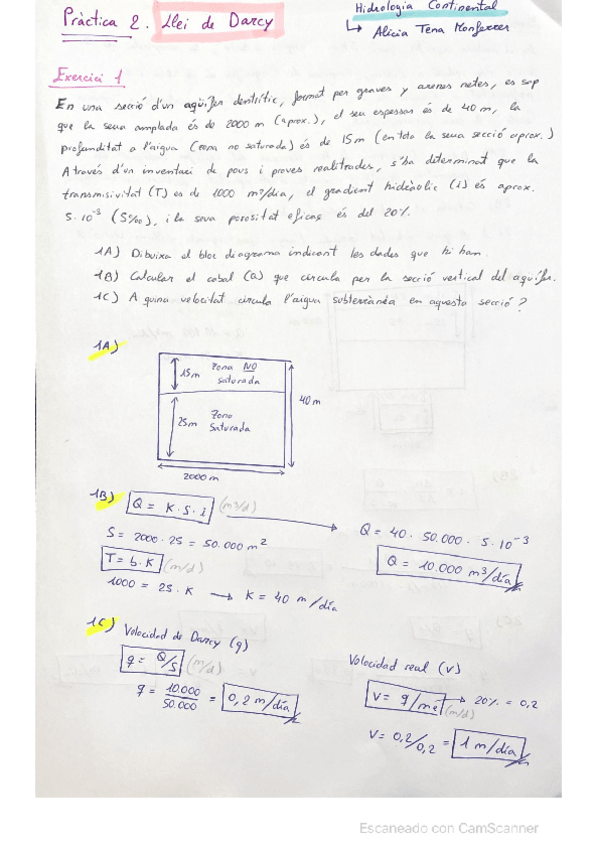 Pràctica 2. Llei de Darcy
Hidrologia Continental
↳ Alicia Tena Monferrer
Exercici 1
En una secció d'un aqüífer dentrític, format per graves y arenes netes, es sap
que la seua amplada és de 2000 m (aprox.), el seu espessor és de 40 m, la
profunditat a l'aigua (zona no saturada) és de 15 m (en tota la seua secció aprox.)
A través d'un inventari de pous i proves realitzades, s'ha determinat que la
transmisivitat (T) es de 1000 m²/dia, el gradient hidràulic (i) és aprox.
5·10⁻³ (5‰), i la seva porositat eficaç és del 20%.
1A) Dibuixa el bloc diagrama indicant les dades que hi han.
1B) Calcular el cabal (Q) que circula per la secció vertical del aqüífer.
1C) A quina velocitat circula l'aigua subterrània en aquesta secció?
1A)
15 m
Zona NO
saturada
40 m
25 m
Zona
Saturada
2000 m
1B) Q = K · S · i (m³/d)
Q = 40 · 50.000 · 5 · 10⁻³
S = 2000 · 25 = 50.000 m²
Q = 10.000 m³/día
T = b · K (m/d)
1000 = 25 · K → K = 40 m/día
1C) Velocidad de Darcy (q)
Velocidad real (v)
q = Q/S (m/d)
v = q/me → 20% = 0,2
(m/d)
q = 10.000/50.000 = 0,2 m/día
v = 0,2/0,2 = 1 m/día
Escaneado con CamScanner